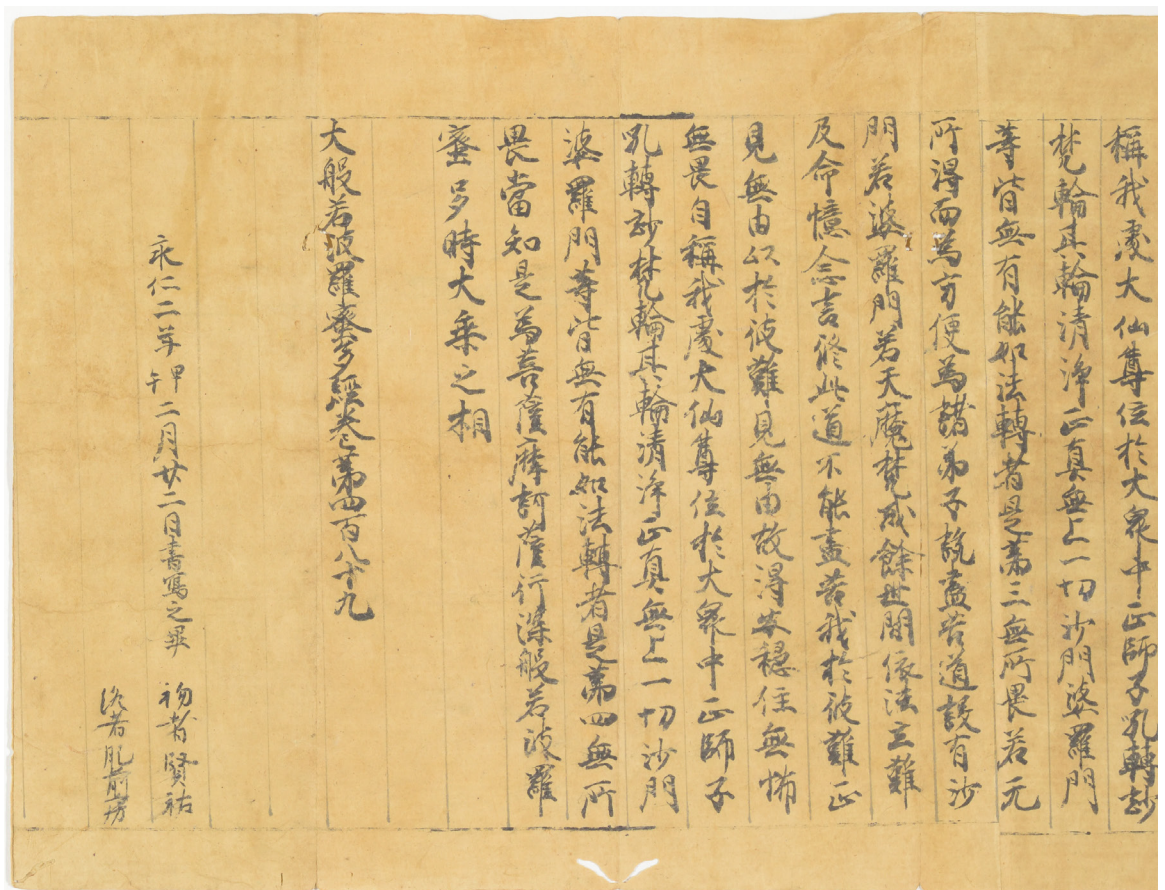 稱我處大仙尊位於大衆中正師子吼轉妙
梵輪其輪清淨正真無上一切沙門婆羅門
等皆無有能如法轉者是第三無所畏若无
所得而為方便為諸弟子說盡苦道設有沙
門若婆羅門若天魔梵或餘世間依法立難
及令憶念言修此道不能盡苦我於彼難正
見無由以於彼難見無由故得安穩住無怖
無畏自稱我處大仙尊位於大衆中正師子
吼轉妙梵輪其輪清淨正真無上一切沙門
婆羅門等皆無有能如法轉者是第四無所
畏當知是為菩薩摩訶薩行深般若波羅
蜜多時大乗之相
大般若波羅蜜多經卷第四百八十九
永仁二年甲午二月廿二日書寫之畢
初者賢祐
後者肥前房